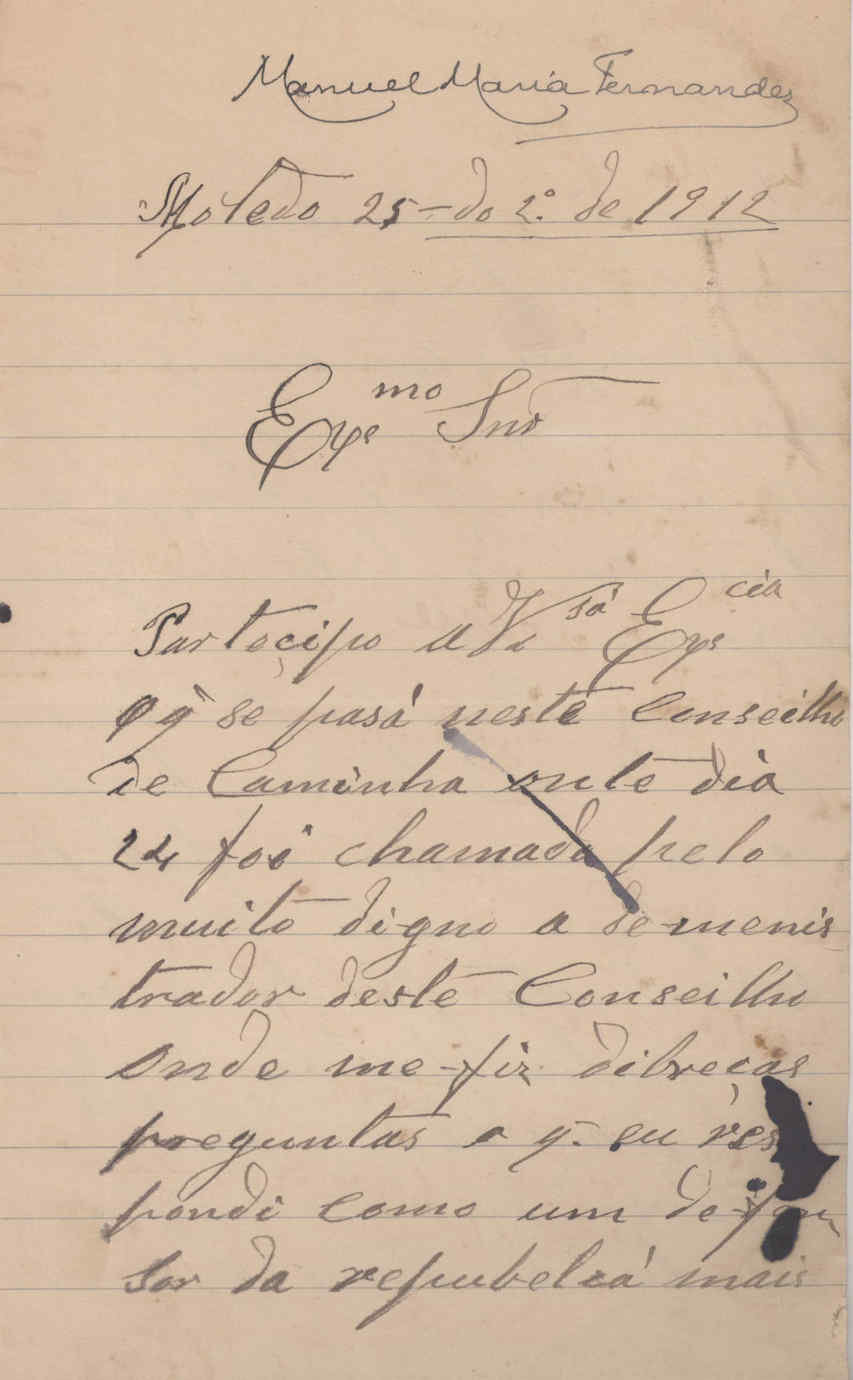 Manuel Maria Fernandez
Moledo 25 - do 2º de 1912
Exmo Snr
Parteçipo a Vsa Excia
o q se pasá neste Conseilho
de Caminha onte dia
24 foi chamado pelo
muito digno a de-menis
trador deste Conseilho
onde me-fiz dibreças
preguntas o q. eu res
pondi como um de-fen
sor da republicá mais